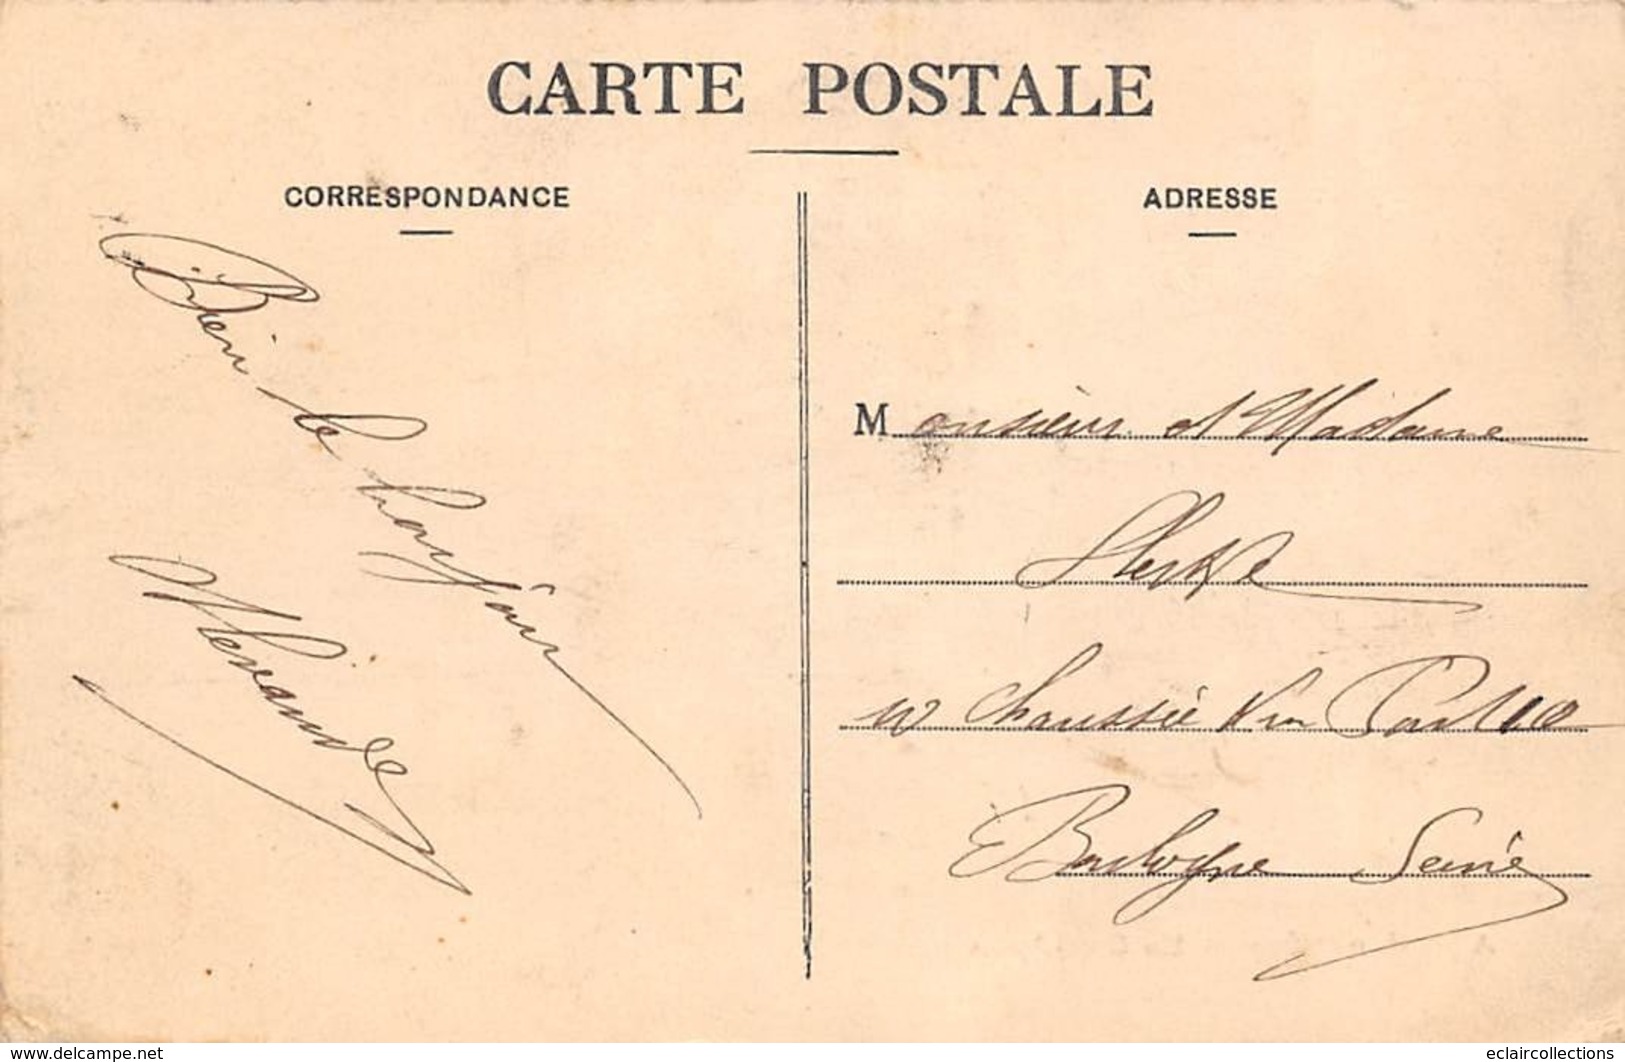 CARTE POSTALE
CORRESPONDANCE
Bien le bonjour
ADRESSE
Monsieur et Madame
10 Chaussée du
Boulogne Seine
www.delcampe.net
eclaircollections